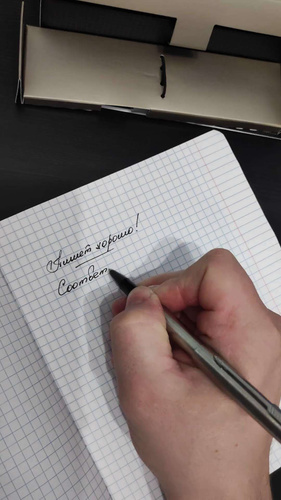 Пишет хорошо!
Соответ